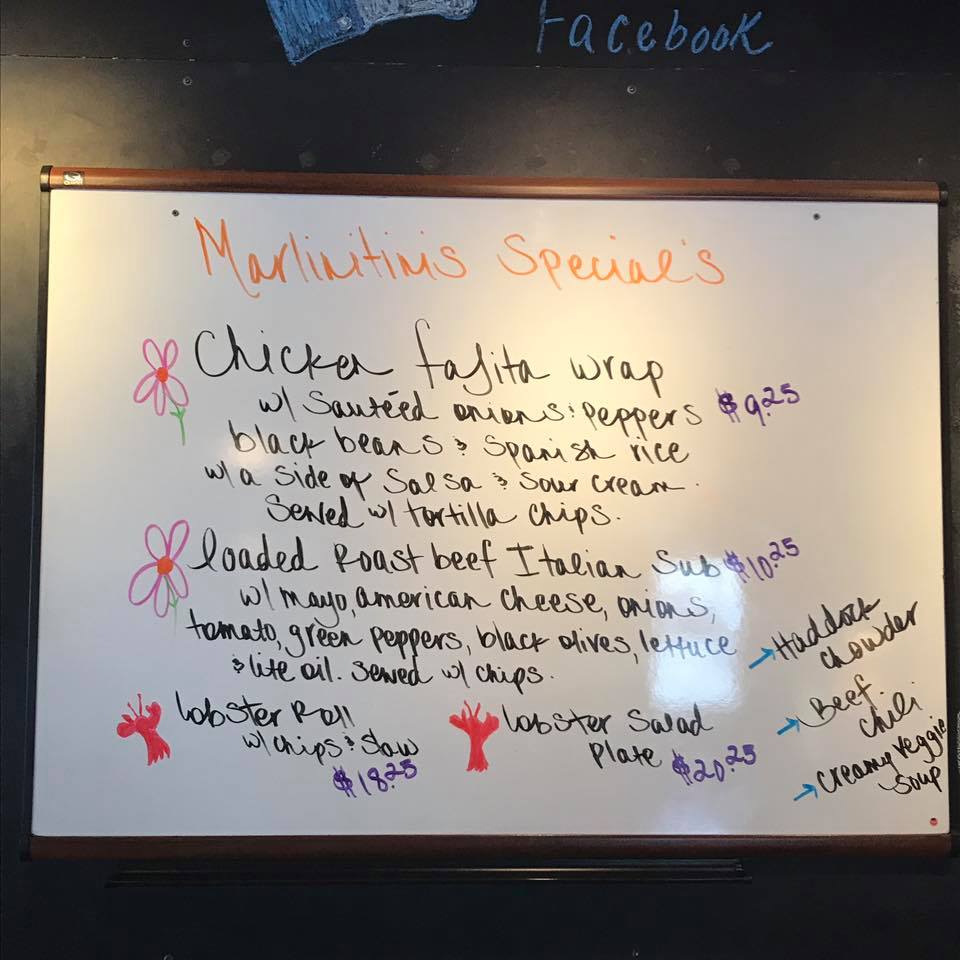 Facebook
Marlinitinis Special's
Chicken fajita wrap
w/ Sautéed onions & peppers $9.25
black beans & Spanish rice
w/ a side of Salsa & Sour cream.
Served w/ tortilla chips.
loaded Roast beef Italian Sub $10.25
w/ mayo, american cheese, onions,
tomato, green peppers, black olives, lettuce
& lite oil. Served w/ chips.
lobster Roll
w/ chips & Slaw
$18.25
lobster Salad
Plate $20.25
→ Haddock
chowder
→ Beef
chili
→ Creamy Veggie
Soup